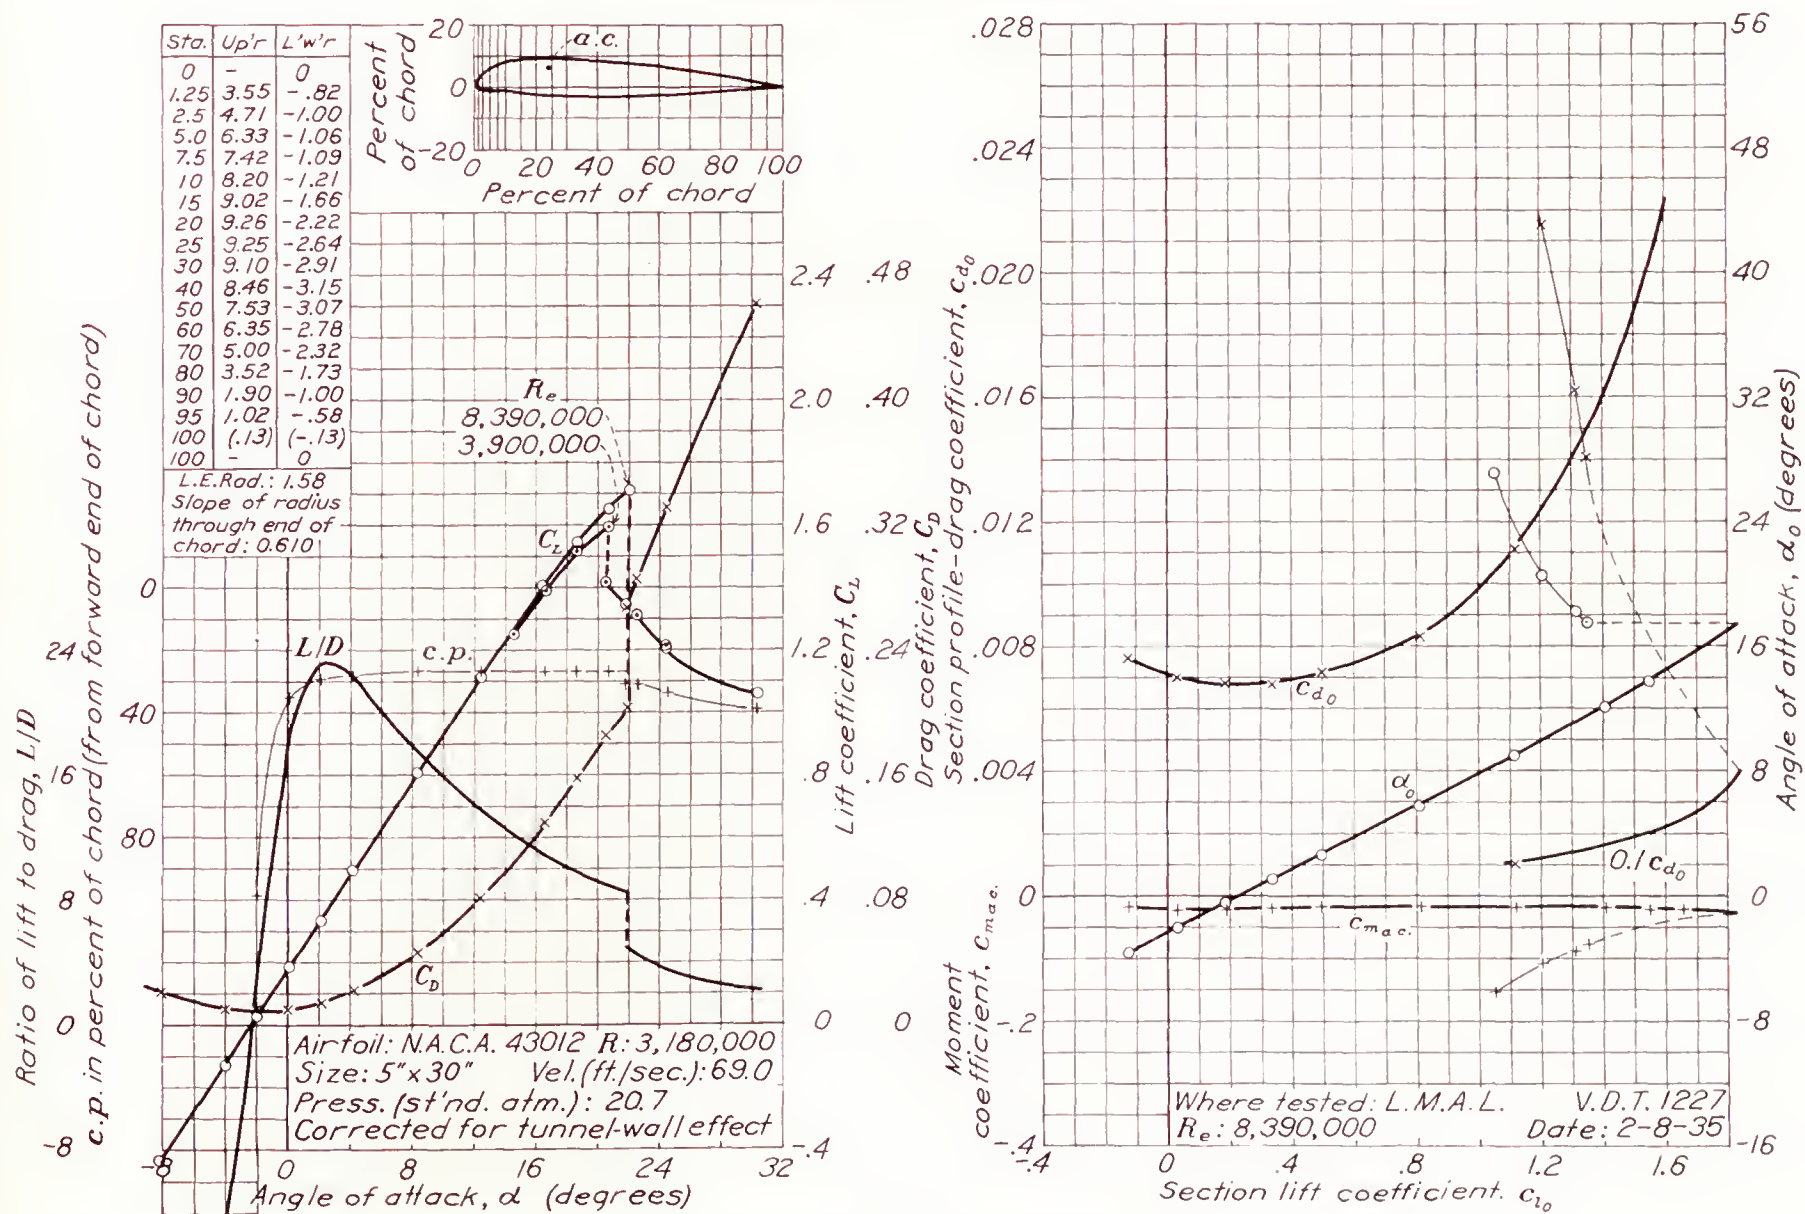 Sta. Up'r L'w'r
0 - 0
1.25 3.55 -.82
2.5 4.71 -1.00
5.0 6.33 -1.06
7.5 7.42 -1.09
10 8.20 -1.21
15 9.02 -1.66
20 9.26 -2.22
25 9.25 -2.64
30 9.10 -2.91
40 8.46 -3.15
50 7.53 -3.07
60 6.35 -2.78
70 5.00 -2.32
80 3.52 -1.73
90 1.90 -1.00
95 1.02 -.58
100 (.13) (-.13)
100 - 0
L.E.Rad.: 1.58
Slope of radius
through end of
chord: 0.610
Percent
of chord
20
0
-20
a.c.
0 20 40 60 80 100
Percent of chord
Ratio of lift to drag, L/D
24
16
8
0
-8
c.p. in percent of chord (from forward end of chord)
0
40
80
Re
8,390,000
3,900,000
CL
L/D
c.p.
CD
2.4
2.0
1.6
1.2
.8
.4
0
-.4
Lift coefficient, CL
.48
.40
.32
.24
.16
.08
0
Drag coefficient, CD
Airfoil: N.A.C.A. 43012 R: 3,180,000
Size: 5"x30" Vel. (ft./sec.): 69.0
Press. (st'nd. atm.): 20.7
Corrected for tunnel-wall effect
-8 0 8 16 24 32
Angle of attack, α (degrees)
Section profile-drag coefficient, cd0
.028
.024
.020
.016
.012
.008
.004
0
-.2
-.4
Moment
coefficient, Cm a.c.
cd0
α0
0.1 cd0
Cm a.c.
56
48
40
32
24
16
8
0
-8
-16
Angle of attack, α0 (degrees)
Where tested: L.M.A.L. V.D.T. 1227
Re: 8,390,000 Date: 2-8-35
-.4 0 .4 .8 1.2 1.6
Section lift coefficient. cl0